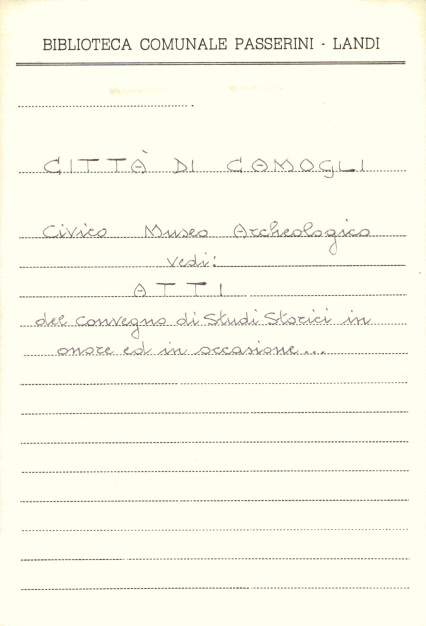 BIBLIOTECA COMUNALE PASSERINI - LANDI
CITTÀ DI CAMOGLI
Civico Museo Archeologico
vedi:
ATTI
del convegno di Studi Storici in
onore ed in occasione...